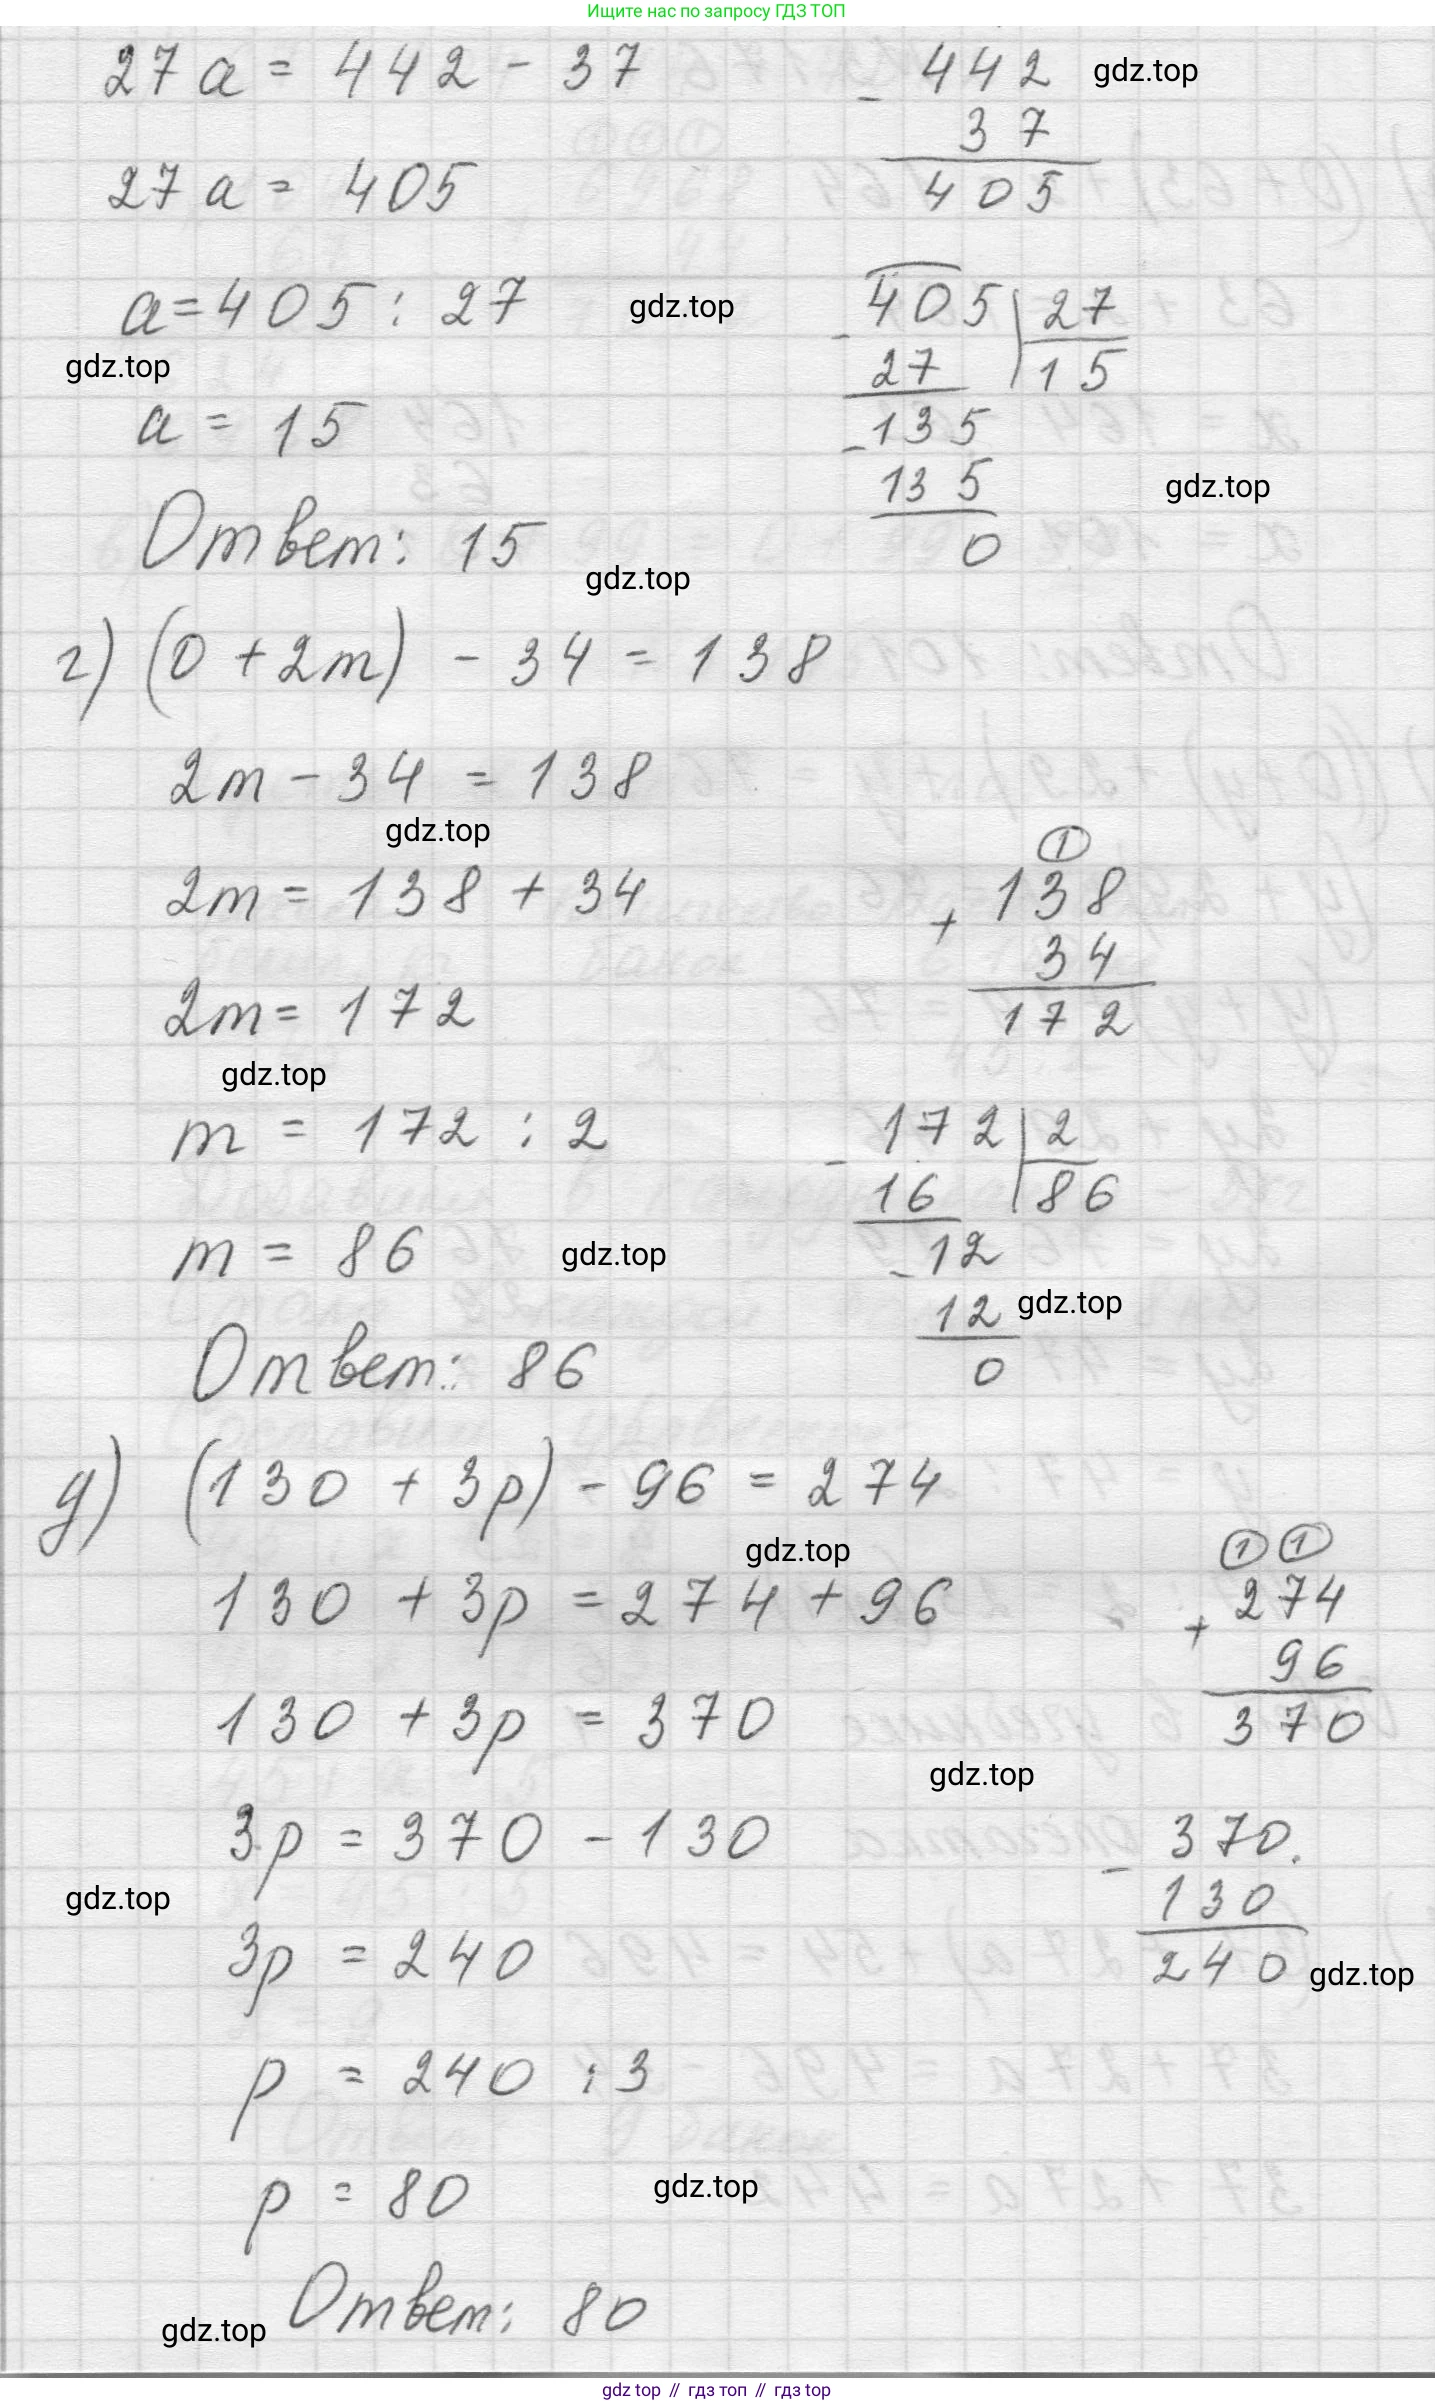 Ищите нас по запросу ГДЗ ТОП
27a = 442 - 37
442 gdz.top
- 37
405
27a = 405
a = 405 : 27 gdz.top
405 | 27
- 27 | 15
- 135
135
0
gdz.top
a = 15
gdz.top
Ответ: 15
gdz.top
г) (0 + 2m) - 34 = 138
2m - 34 = 138
gdz.top
2m = 138 + 34
1
138
+ 34
172
2m = 172
gdz.top
m = 172 : 2
172 | 2
- 16 | 86
- 12
12 gdz.top
0
m = 86 gdz.top
Ответ: 86
д) (130 + 3p) - 96 = 274
gdz.top
130 + 3p = 274 + 96
1 1
274
+ 96
370
130 + 3p = 370
gdz.top
3p = 370 - 130
370
- 130
240 gdz.top
gdz.top
3p = 240
p = 240 : 3
p = 80 gdz.top
Ответ: 80
gdz.top
gdz top // гдз топ // гдз top